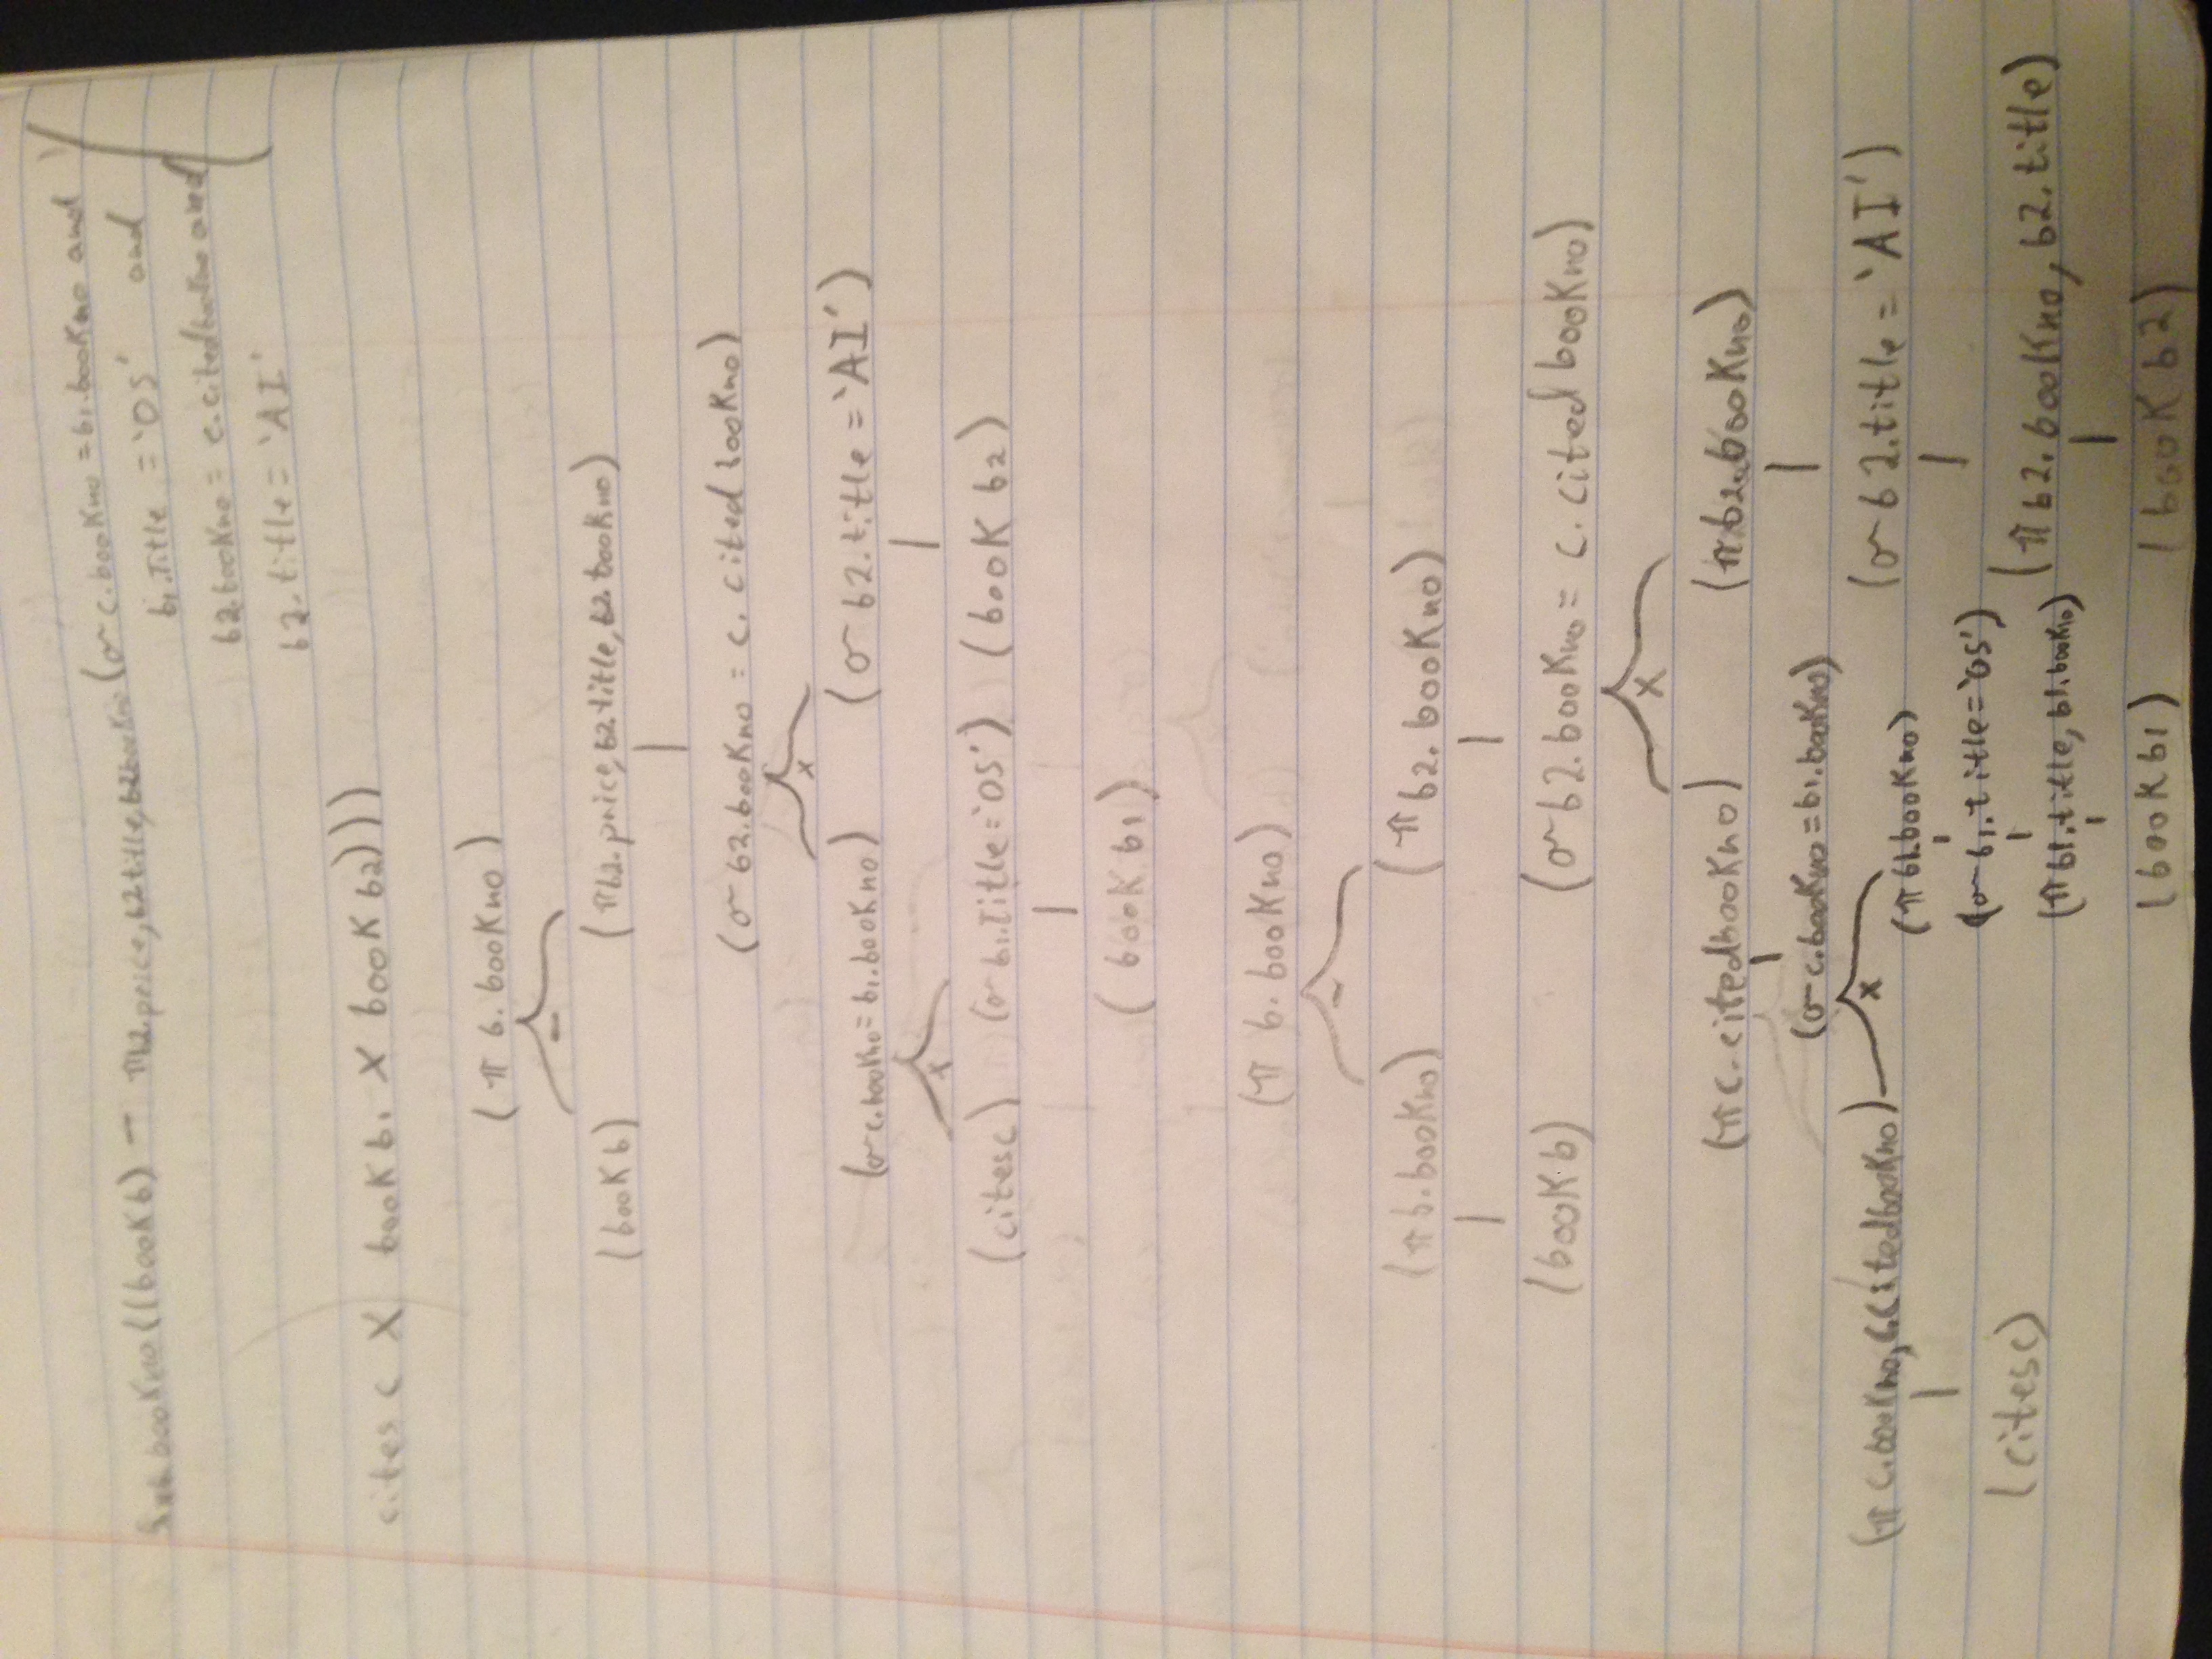 bookno((book b) − π b2.price, b2.title, b2.bookno (σ c.bookno = b1.bookno and
b1.Title = 'OS' and
b2.bookno = c.citedbookno and
b2.title = 'AI'
cites c X book b1 X book b2)))
(π b.bookno)
−
(book b) (π b2.price, b2.title, b2.bookno)
(σ b2.bookno = c.cited bookno)
x
(σ c.bookno = b1.bookno) (σ b2.title = 'AI')
x
(cites c) (σ b1.Title = 'OS') (book b2)
(book b1)
(π b.bookno)
−
(π b.bookno) (π b2.bookno)
(book b) (σ b2.bookno = c.cited bookno)
x
(π c.citedbookno) (π b2.bookno)
(σ c.bookno = b1.bookno)
(π c.bookno, c.citedbookno) x (σ b2.title = 'AI')
(π b1.bookno)
(σ b1.title = 'OS')
(cites c) (π b2.bookno, b2.title)
(π b1.title, b1.bookno)
(book b1) (book b2)